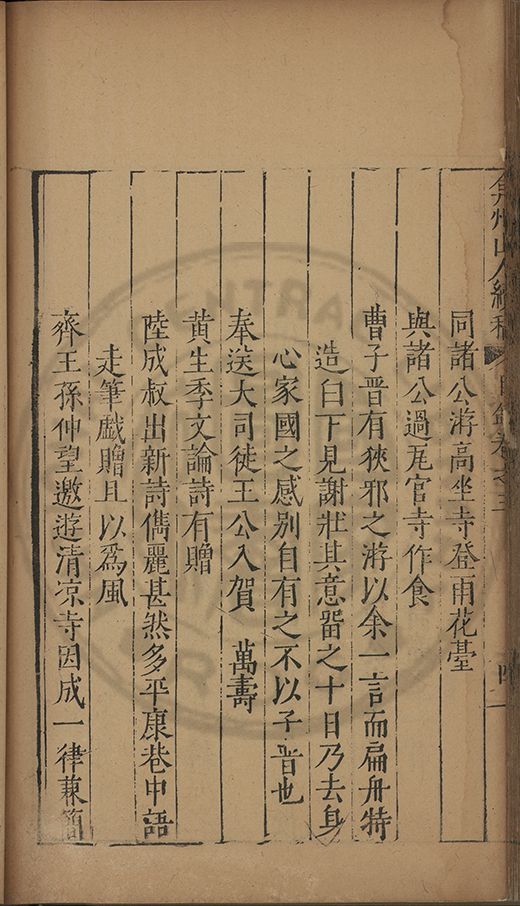 弇州山人續稿 目錄卷之三 四
同諸公游高坐寺登雨花臺
與諸公過瓦官寺作食
曹子晋有狹邪之游以余一言而扁舟特
造白下見謝壯其意留之十日乃去身
心家國之感别自有之不以子晋也
奉送大司徒王公入賀 萬壽
黄生季文論詩有贈
陸成叔出新詩儁麗甚然多平康巷中語
走筆戯贈且以爲風
齊王孫仲望邀遊清凉寺因成一律兼簡